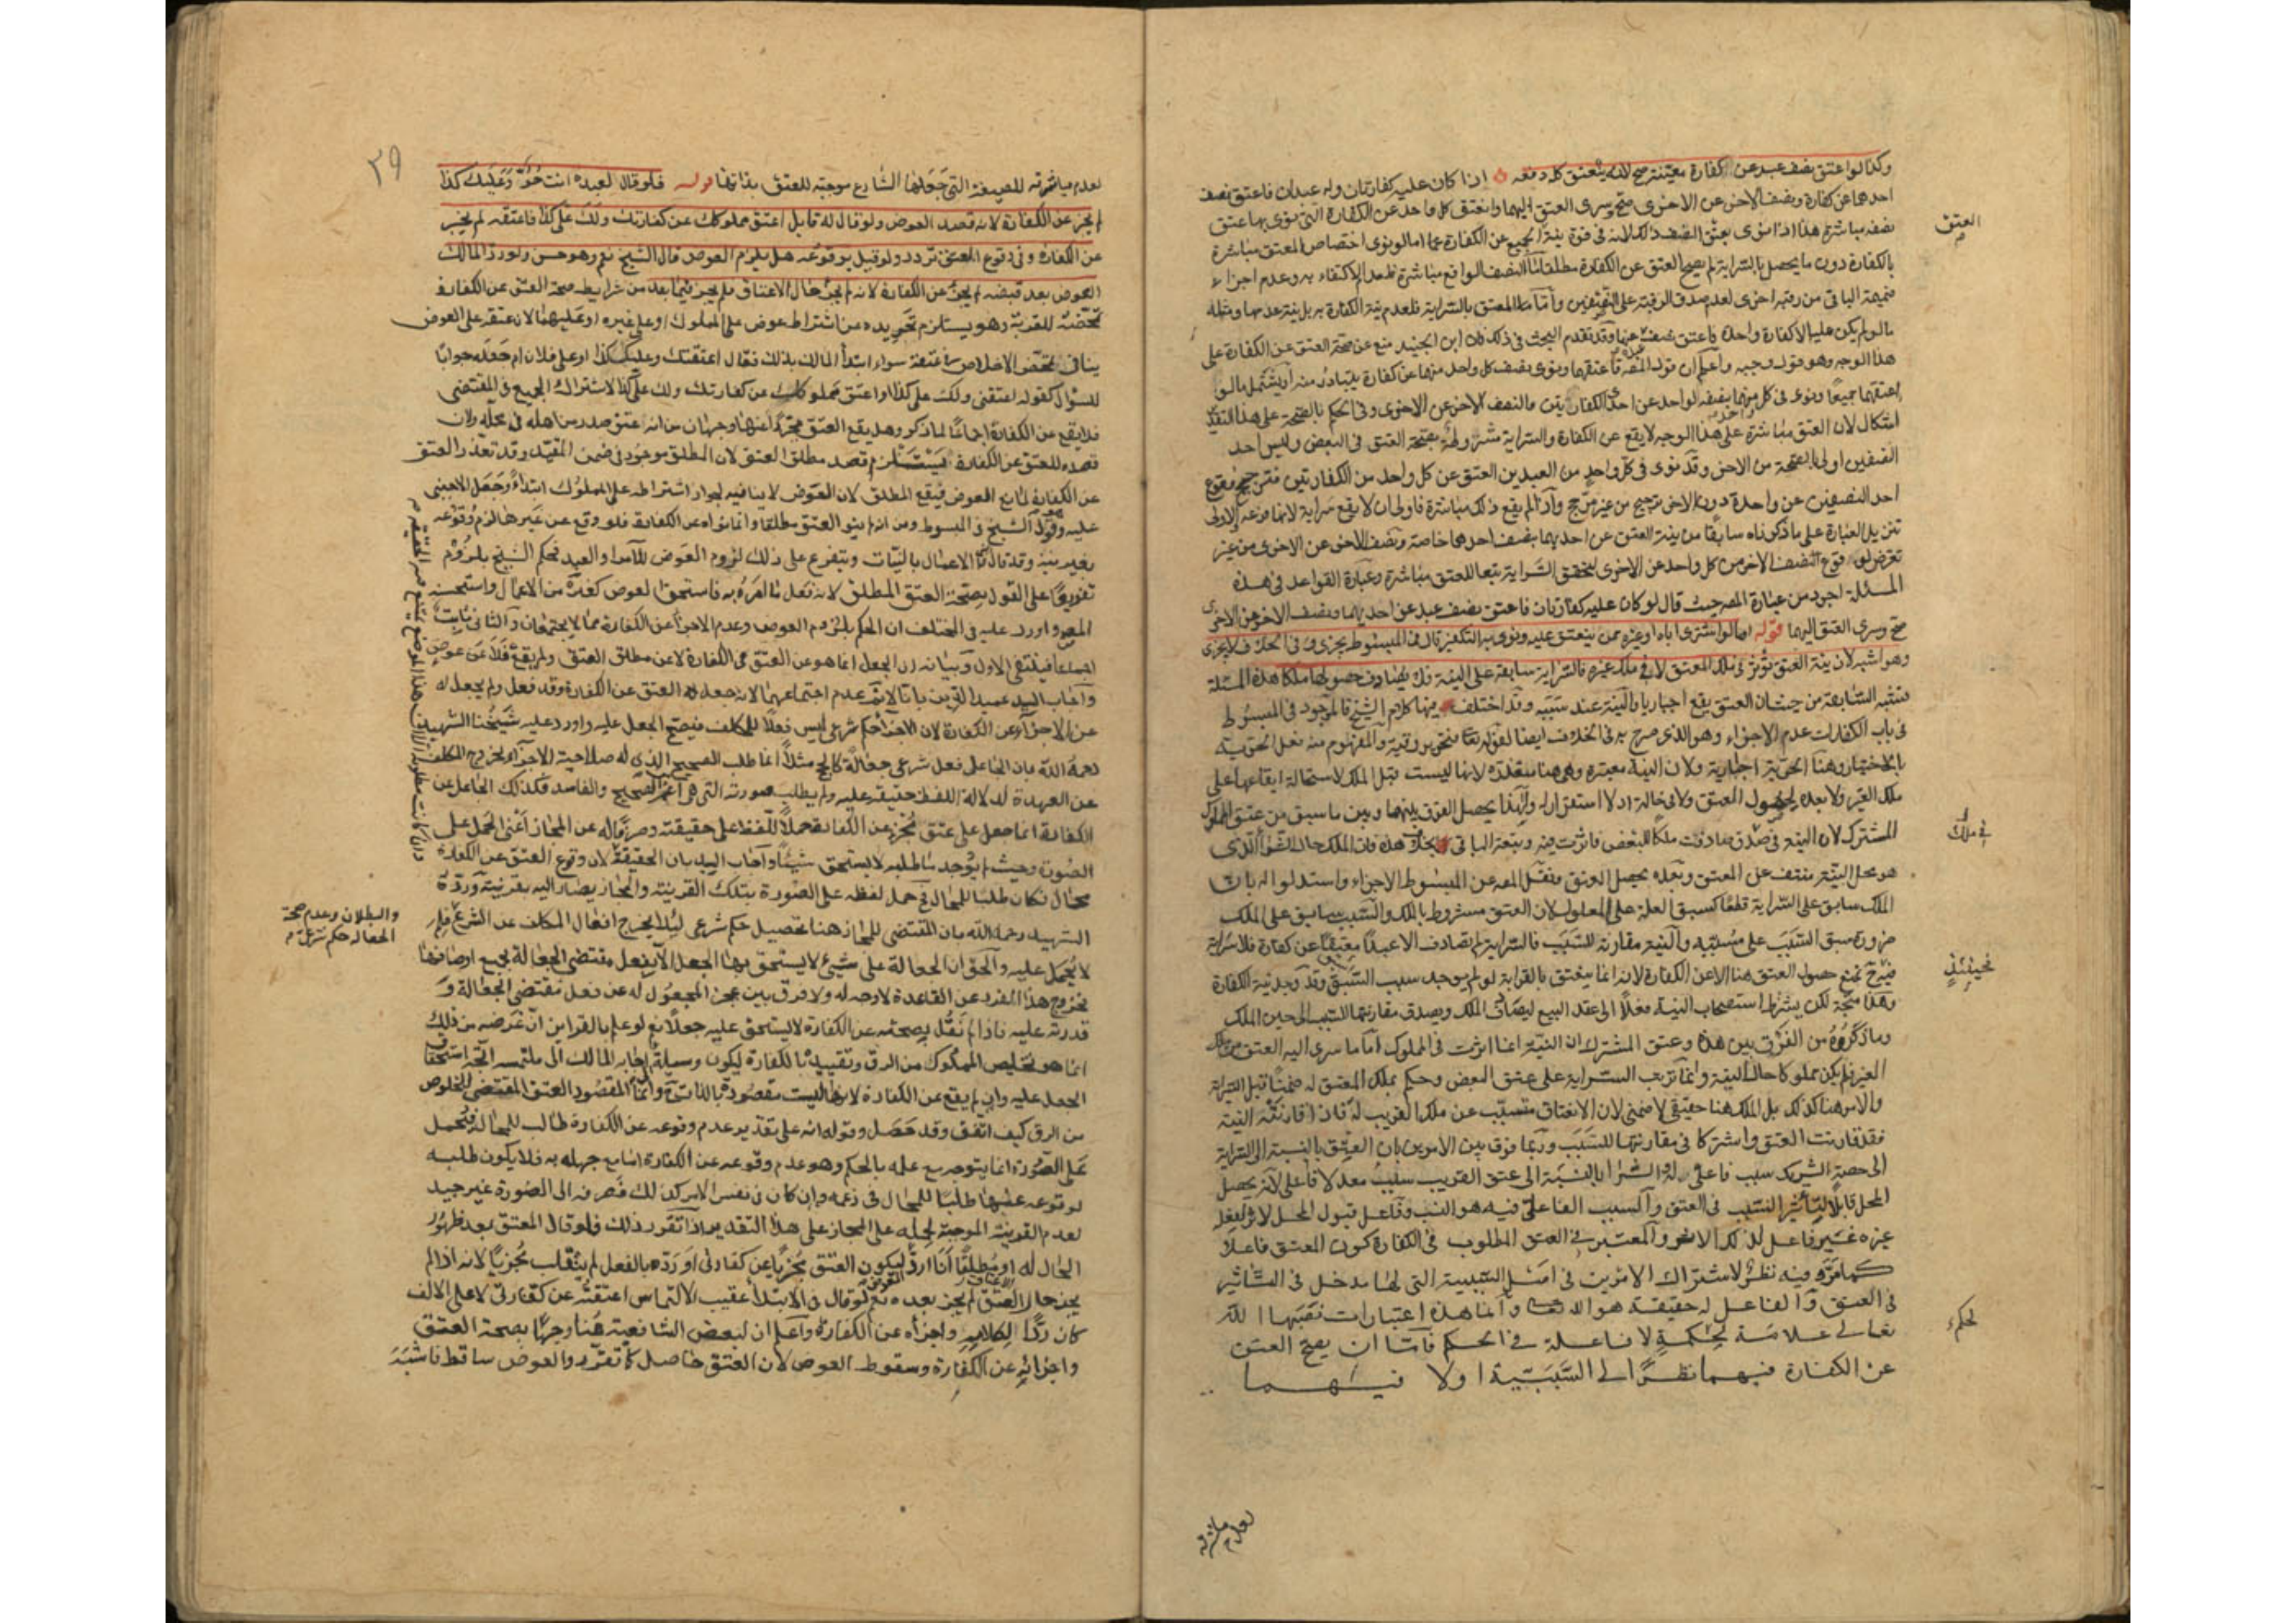 وكذا لو اعتق نصف عبد عن كفارة معينة صح لانه ينعتق كله دفعة اذا كان عليه كفارتان وله عبدان فاعتق نصف
احدهما عن كفارة ونصف الاخر عن الاخرى صح وسرى العتق اليهما وانعتق كل واحد عن الكفارة التي نوى بها عتق
نصفه مباشرة هذا اذا نوى بعتق النصف ذلك لانه في قوة نية الجميع عن الكفارة اما لو نوى اختصاص المعتق مباشرة
بالكفارة دون ما يحصل بالسراية لم يصح العتق عن الكفارة مطلقا اما النصف الواقع مباشرة فلعدم الاكتفاء به وعدم اجزاء
ضميمة الباقي من رقبة اخرى لعدم صدق الرقبة على النصفين واما المعتق بالسراية فلعدم نية الكفارة به بل نية عدمها ومثله
ما لو لم يكن عليه الا كفارة واحدة فاعتق نصفي عنها وقد تقدم البحث في ذلك فان ابن الجنيد منع عن صحة العتق عن الكفارة على
هذا الوجه وهو قول وجيه واعلم ان قول المصنف فاعتقهما ونوى بنصف كل واحد منهما عن كفارة يتبادر منه او يشتمل ما لو
اعتقهما جميعا ونوى في كل منهما بنصفه الواحد عن احدى الكفارتين والنصف الاخر عن الاخرى وفي الحكم بالصحة على هذا التقدير
اشكال لان العتق مباشرة على هذا الوجه لا يقع عن الكفارة والسراية مشروطة بصحة العتق في البعض وليس احد
النصفين اولى بالصحة من الاخر وقد نوى في كل واحد من العبدين العتق عن كل واحد من الكفارتين فترجيح وقوع
احد النصفين عن واحدة دون الاخر ترجيح من غير مرجح واذا لم يقع ذلك مباشرة فاولى ان لا يقع سراية لانها فرعه الاولى
تنزيل العبارة على ما ذكرناه سابقا من نية العتق عن احديهما بنصف احدهما خاصة ونصف الاخر عن الاخرى من غير
تعرض لوقوع النصف الاخر من كل واحد عن الاخرى لتحقق السراية تبعا للعتق مباشرة وعبارة القواعد في هذه
المسئلة اجود من عبارة المصر حيث قال لو كان عليه كفارتان فاعتق نصف عبد عن احديهما ونصف الاخر عن الاخرى
صح وسرى العتق اليهما قوله اما لو اشترى اباه او غيره ممن ينعتق عليه ونوى به التكفير قال في المبسوط يجزي وفي الخلاف لا يجزي
وهو اشبه لان نية العتق تؤثر في ملك المعتق لا في ملك غيره فالسراية سابقة على النية فلا يصادف حصولها ملكا هذه المسئلة
تشبه السابقة من حيث ان العتق يقع اجباريا والنية عند سببه وقد اختلف فيها كلام الشيخ فالموجود في المبسوط
في باب الكفارات عدم الاجزاء وهو الذي صرح به في الخلاف ايضا لقوله تعالى فتحرير رقبة والمفهوم منه فعل الحرية
بالاختيار وهنا الحرية اجبارية ولان النية معتبرة وهي هنا متعذرة لانها ليست قبل الملك لاستحالة ايقاعها على
ملك الغير ولا بعده لحصول العتق ولا في حالة اذ لا استقرار له وبهذا يحصل الفرق بينها وبين ما سبق من عتق المملوك
المشترك لان النية فيه صادفت ملكا للبعض فاثرت فيه وتبعه الباقي بخلاف هذه فان الملك حال الشراء الذي
هو محل النية منتف عن المعتق وبعده يحصل العتق ونقل المصر عن المبسوط الاجزاء واستدلوا له بان
الملك سابق على السراية قطعا كسبق العلة على المعلول لان العتق مشروط بالملك والسبب سابق على الملك
ضرورة سبق السبب على مسببه والنية مقارنة للسبب فالسراية لم تصادف الا عبدا معتقا عن كفارة فلا سراية
فيه ح تمنع حصول العتق هنا الا عن الكفارة لانه انما ينعتق بالقرابة لو لم يوجد سبب اسبق وقد وجد نية الكفارة
وهذا متجه لكن يشترط استصحاب النية فعلا الى عقد البيع ليصادف الملك ويصدق مقارنتها للسبب الى حين الملك
وما ذكروه من الفرق بين هذه وعتق المشترك ان النية انما اثرت في المملوك اما ما سرى اليه العتق من ملك
الغير فلم يكن مملوكا حال النية وانما ترتب السراية على عتق البعض وحكم بملك المعتق له ضمنا قبل السراية
والامر هنا كذلك بل الملك هنا حقيقي لا ضمني لان الانعتاق متسبب عن ملك القريب له فاذا قارنته النية
فقد قارنت العتق واشتركا في مقارنتها للسبب وربما فرق بين الامرين بان العتق بالنسبة الى السراية
الى حصة الشريك سبب فاعلي له والشراء بالنسبة الى عتق القريب سبب معد لا فاعلي لانه يحصل
المحل قابلا لتأثير السبب في العتق والسبب الفاعلي فيه هو النسب وفاعل قبول المحل لاثر يفعله
غيره غير فاعل لذلك الاثر والمعتبر في العتق المطلوب في الكفارة كون المعتق فاعلا
كما مر وفيه نظر لاشتراك الامرين في اصل السببية التي لها مدخل في التأثير
في العتق والفاعل له حقيقة هو الله تعالى وانما هذه اعتبارات نصبها الله
تعالى علامة لحكمه لا فاعلة في الحكم فاما ان يصح العتق
عن الكفارة فيهما نظرا الى السببية او لا فيهما
العتق
في ملك
فحينئذ
لحكم
لعدم مباشرته
٣٩
لعدم مباشرته للصيغة التي جعلها الشارع موجبة للعتق بذاتها قوله فلو قال لعبده انت حر وعليك كذا
لم يجز عن الكفارة لانه قصد العوض ولو قال له قايل اعتق مملوكك عن كفارتك ولك على كذا فاعتقه لم يجز
عن الكفارة وفي وقوع العتق تردد ولو قيل بوقوعه هل يلزم العوض قال الشيخ نعم وهو حسن ولو رد المالك
العوض بعد قبضه لم يجز عن الكفارة لانه لم يجز حال الاعتاق فلم يجز فيما بعد من شرايط صحة العتق عن الكفارة
تمحضه للقربة وهو يستلزم تجريده من اشتراط عوض على المملوك او على غيره او عليهما لان عتقه على العوض
ينافي تمحض الاخلاص في عتقه سواء ابتدأ المالك بذلك فقال اعتقتك وعليك كذا او على فلان ام جعله جوابا
للسؤال كقوله اعتقني ولك على كذا او اعتق مملوكك عن كفارتك ولك على كذا لاشتراك الجميع في المقتضي
فلا يقع عن الكفارة اجماعا لما ذكر وهل يقع العتق مجردا عنها وجهان من انه عتق صدر من اهله في محله ولان
قصده للعتق عن الكفارة يستلزم قصد مطلق العتق لان المطلق موجود في ضمن المقيد وقد تعذر العتق
عن الكفارة لمانع العوض فيقع المطلق لان العوض لا ينافيه لجواز اشتراطه على المملوك ابتداء وجعل الاجنبي
عليه وهو قول الشيخ في المبسوط ومن انه لم ينو العتق مطلقا وانما نواه عن الكفارة فلو وقع عن غيرها لزم وقوعه
بغير نية وقد قال انما الاعمال بالنيات ويتفرع على ذلك لزوم العوض للآمر او العبد فحكم الشيخ بلزومه
تفريعا على القول بصحة العتق المطلق لانه فعل ما امره به فاستحق العوض كغيره من الاعمال واستحسنه
المصر واورد عليه في المختلف ان الحكم بلزوم العوض وعدم الاجزاء عن الكفارة مما لا يجتمعان والثاني ثابت
اجماعا فينتفي الاول وبيانه ان الجعل انما هو عن العتق عن الكفارة لا عن مطلق العتق ولم يقع فلا عوض
واجاب السيد عميد الدين بانا لا نم عدم اجتماعهما لانه جعل له العتق عن الكفارة وقد فعل ولم يجعل له
عن الاجزاء عن الكفارة لان الاجزاء حكم شرعي ليس فعلا للمكلف فيصح الجعل عليه واورد عليه شيخنا الشهيد
رحمه الله بان الجاعل على فعل شرعي جعالة كالحج مثلا انما طلب الصحيح الذي له صلاحية الاجزاء وخروج المكلف
عن العهدة لدلالة اللفظ حقيقة عليه ولم يطلب صورته التي هي اعم من الصحيح والفاسد فكذلك الجاعل عن
الكفارة انما جعل على عتق مجز عن الكفارة حملا للفظ على حقيقته وصرفا له عن المجاز اعني الحمل على
الصورة وحيث لم يوجد ما طلبه لا يستحق شيئا واجاب السيد بان الحقيقة لان وقوع العتق عن الكفارة
محال فكان طلبا للمحال فح حمل لفظه على الصورة بتلك القرينة والمجاز يصار اليه بقرينة ورده
الشهيد رحمه الله بان المقتضي للمجاز هنا تحصيل حكم شرعي لئلا يخرج افعال المكلف عن الشرع فلم
لا يحمل عليه والحق ان الجعالة على شيئ لا يستحق بها الجعل الا بفعل مقتضى الجعالة بجميع اوصافها
فخروج هذا الفرد عن القاعدة لا وجه له ولا فرق بين عجز المجعول له عن فعل مقتضى الجعالة و
قدرته عليه فاذا لم نقل بصحته عن الكفارة لا يستحق عليه جعلا نعم لو علم بالقراين ان غرضه من ذلك
انما هو تخليص المملوك من الرق وتقييده بالكفارة ليكون وسيلة الى اجابة المالك الى ملتمسه اتجه استحقاق
الجعل عليه وان لم يقع عن الكفارة لانها ليست مقصودة بالذات وانما المقصود العتق المقتضي للخلوص
من الرق كيف اتفق وقد حصل وقوله انه على تقدير عدم وقوعه عن الكفارة طالب للمحال فيحمل
على الصورة انما يتوجه مع علمه بالحكم وهو عدم وقوعه عن الكفارة اما مع جهله به فلا يكون طلبه
لوقوعه عليها طلبا للمحال في زعمه وان كان في نفس الامر كذلك فصرفه الى الصورة غير جيد
لعدم القرينة الموجبة لحمله على المجاز على هذا التقدير اذا تقرر ذلك فلو قال المعتق بعد ظهور
الحال له او مطلقا انا ارد ليكون العتق مجزيا عن كفارتي او رده بالفعل لم ينقلب مجزيا لانه اذا لم
يجز حال العتق لم يجز بعده نعم لو قال في الابتداء عقيب الالتماس اعتقته عن كفارتي لا على الالف
كان ردا لكلامه واجزأه عن الكفارة واعلم ان لبعض الشافعية هنا وجها بصحة العتق
واجزائه عن الكفارة وسقوط العوض لان العتق حاصل كما تقرر والعوض ساقط فاشبه
والبطلان وعدم صحة
الجعالة حكم شرعي